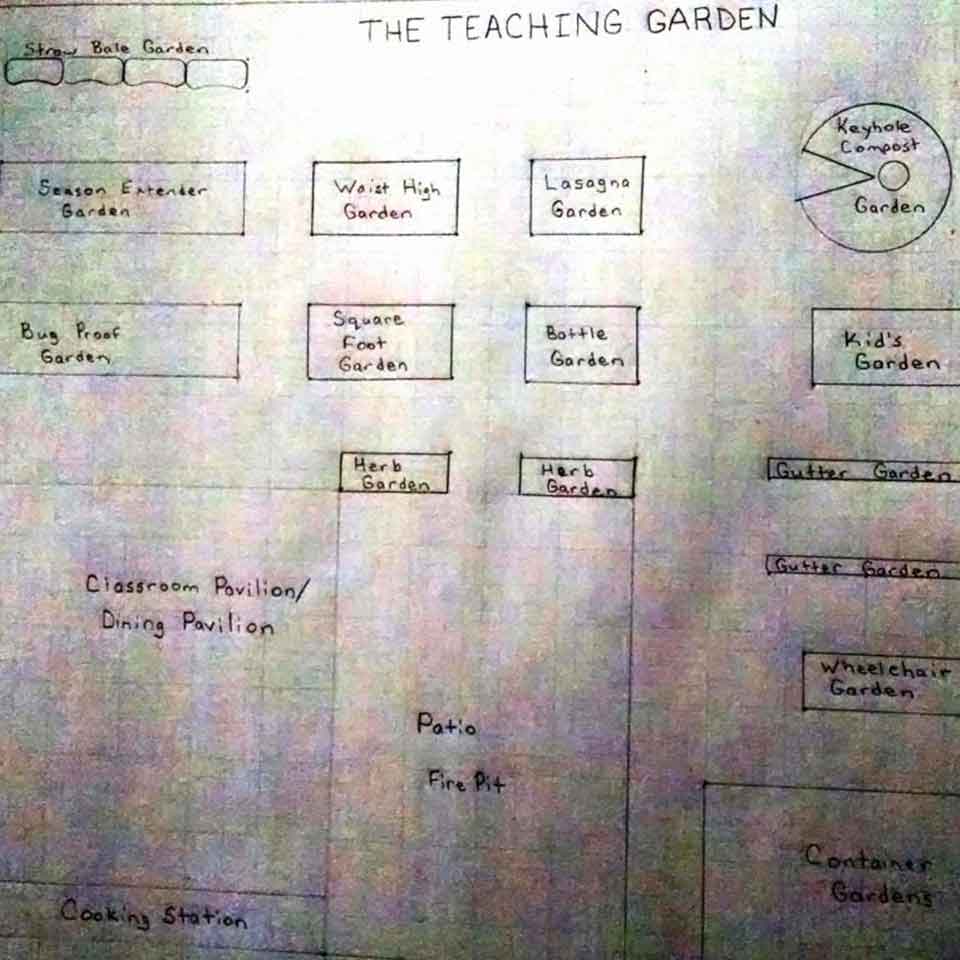 THE TEACHING GARDEN
Straw Bale Garden
Keyhole
Compost
Garden
Season Extender
Garden
Waist High
Garden
Lasagna
Garden
Bug Proof
Garden
Square
Foot
Garden
Bottle
Garden
Kid's
Garden
Herb
Garden
Herb
Garden
Gutter Garden
Gutter Garden
Classroom Pavilion/
Dining Pavilion
Wheelchair
Garden
Patio
Fire Pit
Container
Gardens
Cooking Station